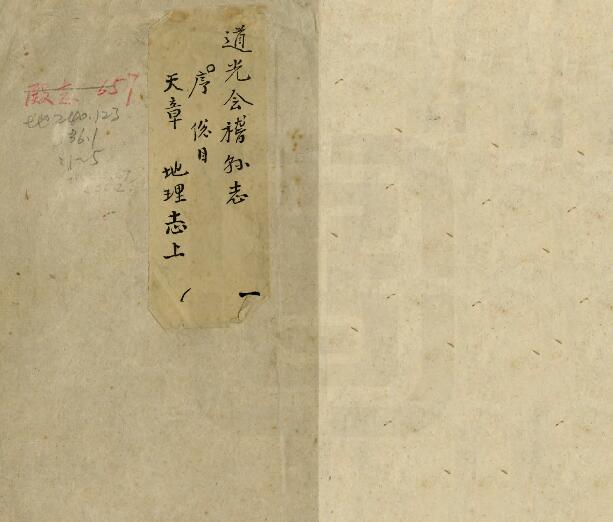 道光会稽縣志 一
序 總目
天章 地理志上
657
地240.123
36.1
:1~5